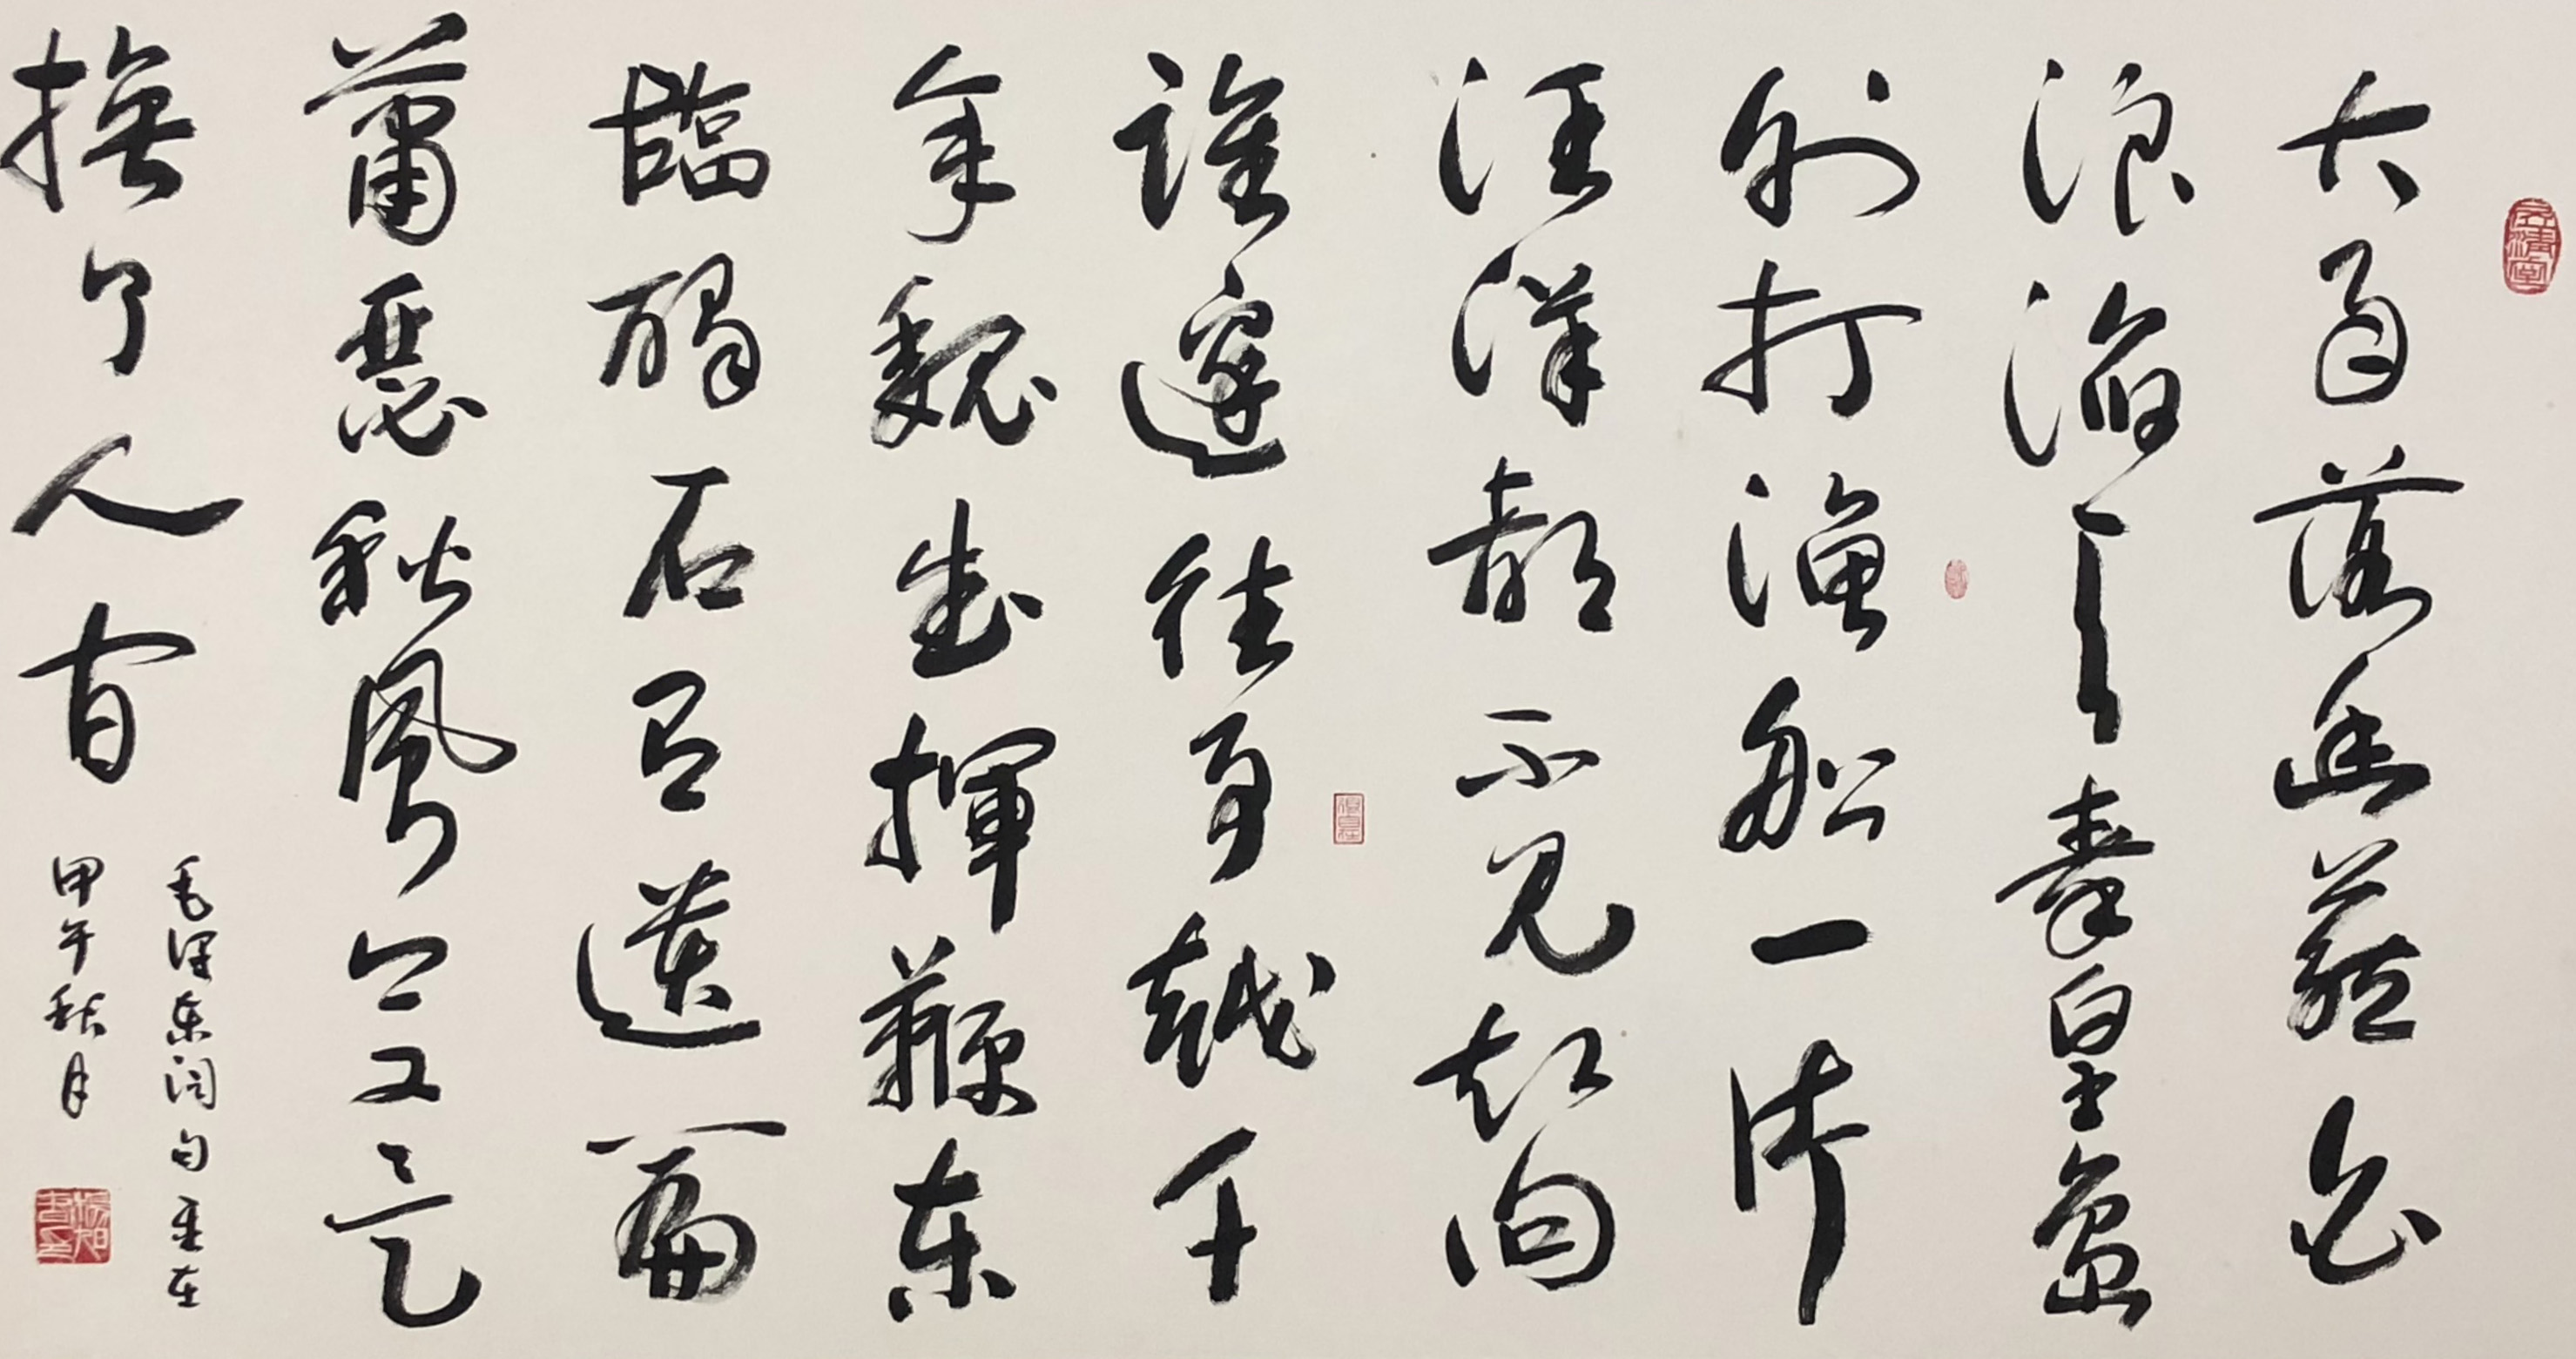 大雨落幽燕白
浪滔天秦皇岛
外打漁船一片
汪洋都不见知向
誰邊往事越千
年魏武揮鞭东
臨碣石有遺篇
蕭瑟秋風今又是
换了人间
毛泽东词句岁在
甲午秋月